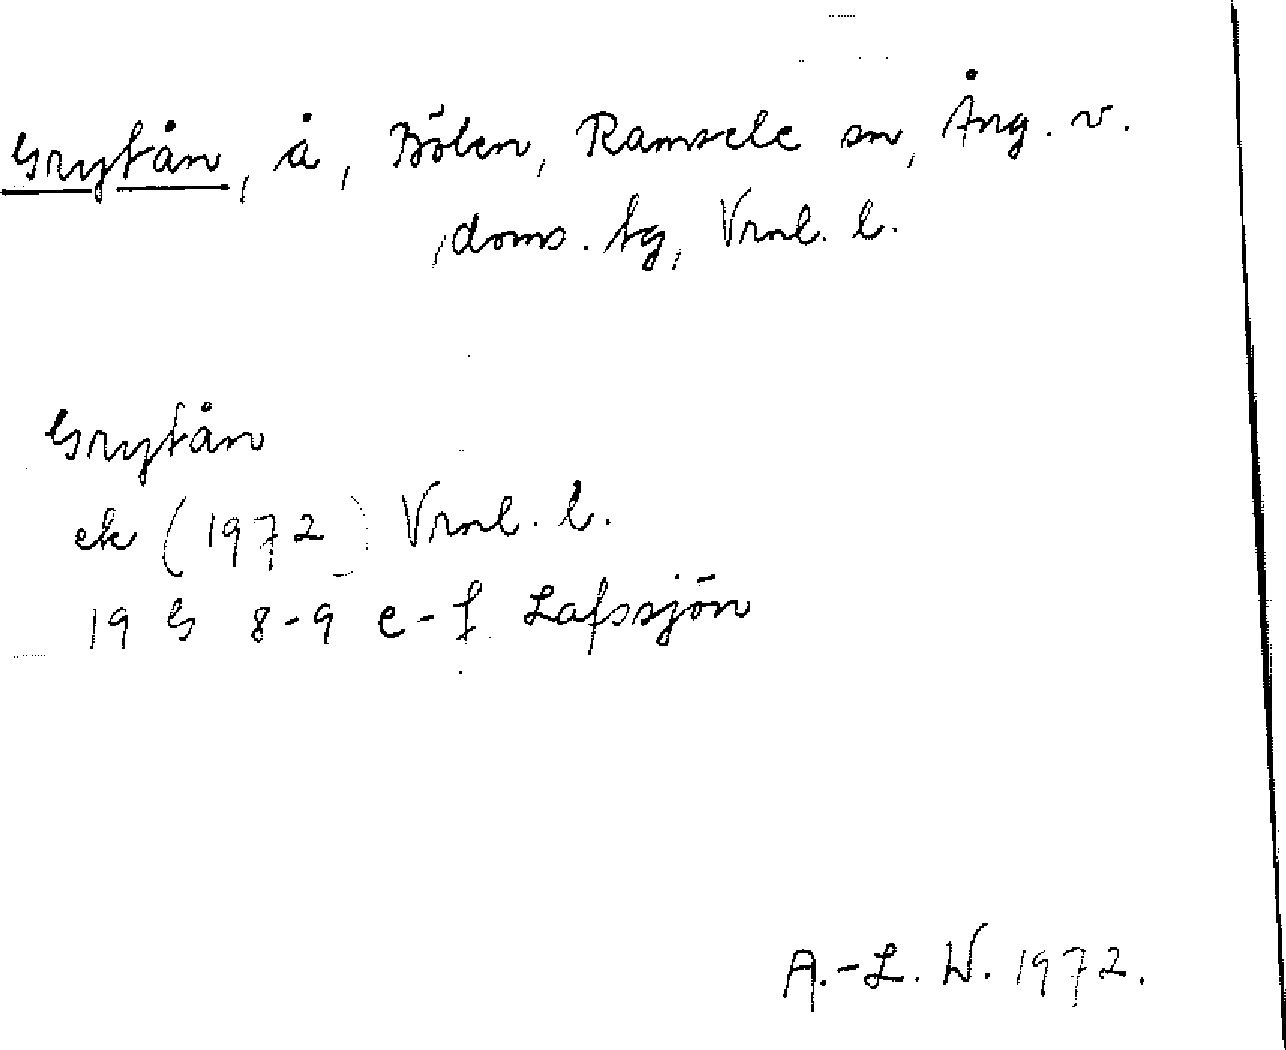 Grytån, å, Bölen, Ramsele sn, Ång. v.
, doms. tg, Vrnl. l.
Grytån
ek (1972) Vrnl. l.
19 G 8-9 e-f Lafssjön
A.-L. W. 1972.